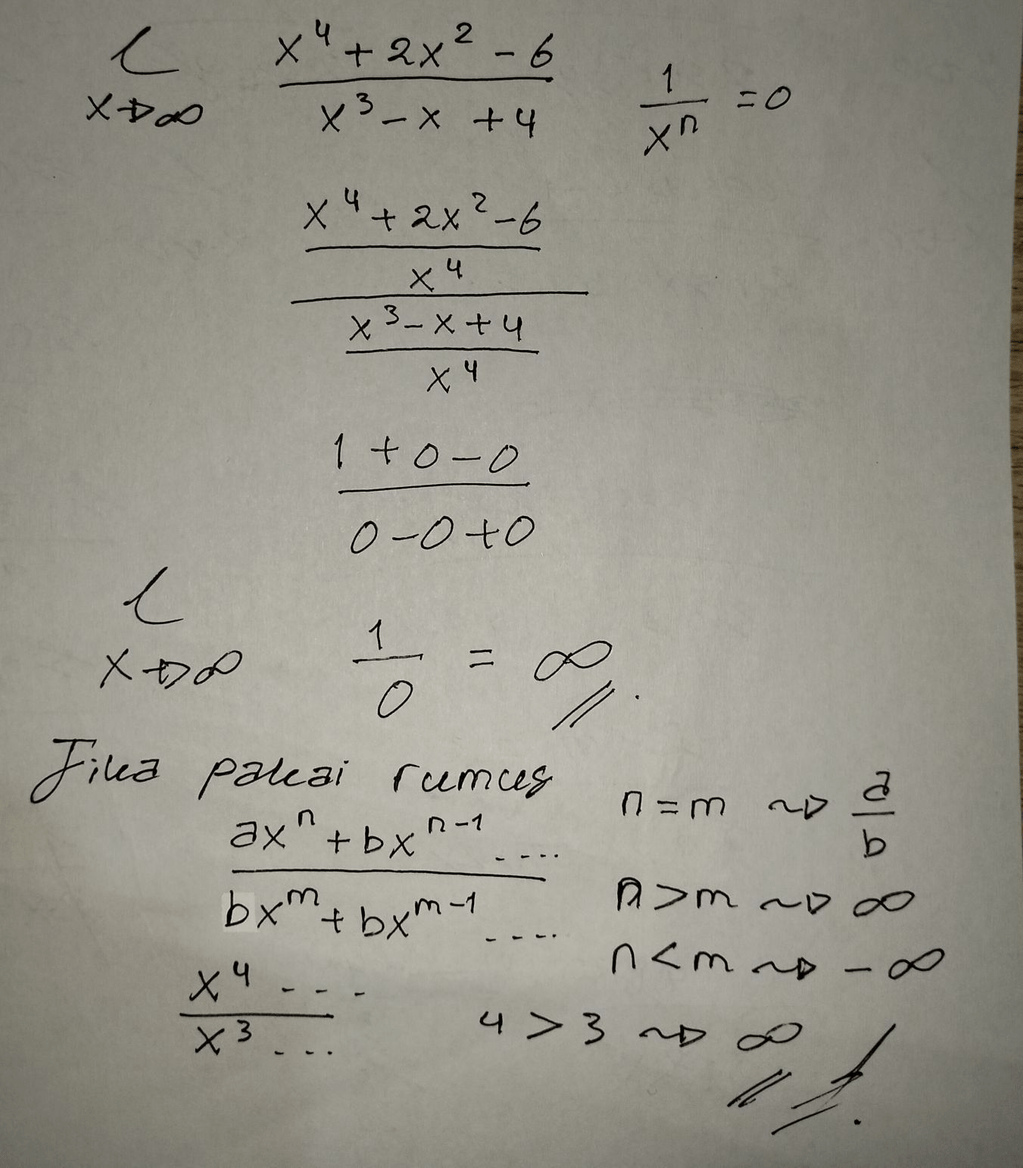 L x→∞ (x⁴ + 2x² - 6)/(x³ - x + 4) 1/xⁿ = 0
((x⁴ + 2x² - 6)/x⁴)/((x³ - x + 4)/x⁴)
(1 + 0 - 0)/(0 - 0 + 0)
L x→∞ 1/0 = ∞ //.
Jika pakai rumus
(axⁿ + bxⁿ⁻¹ ....)/(bxᵐ + bxᵐ⁻¹ ....)
n = m ~> a/b
n > m ~> ∞
n < m ~> - ∞
(x⁴ ---)/(x³ ...) 4 > 3 ~> ∞ //